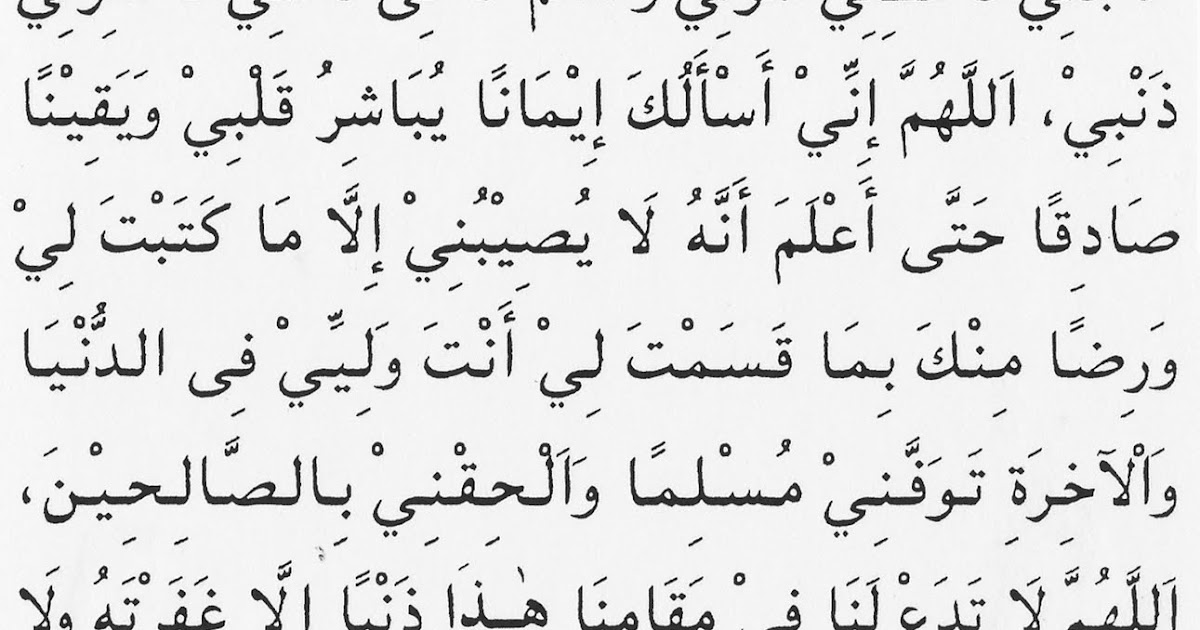 ذَنْبِيْ، اَللَّهُمَّ إِنِّيْ أَسْأَلُكَ إِيْمَانًا يُبَاشِرُ قَلْبِيْ وَيَقِيْنًا
صَادِقًا حَتَّى أَعْلَمَ أَنَّهُ لَا يُصِيْبُنِيْ إِلَّا مَا كَتَبْتَ لِيْ
وَرِضًا مِنْكَ بِمَا قَسَمْتَ لِيْ أَنْتَ وَلِيِّيْ فِى الدُّنْيَا
وَاَلْآخِرَةِ تَوَفَّنِيْ مُسْلِمًا وَاَلْحِقْنِيْ بِالصَّالِحِيْنَ،
اَللَّهُمَّ لَا تَدَعْ لَنَا فِيْ مَقَامِنَا هٰذَا ذَنْبًا إِلَّا غَفَرْتَهُ وَلَا